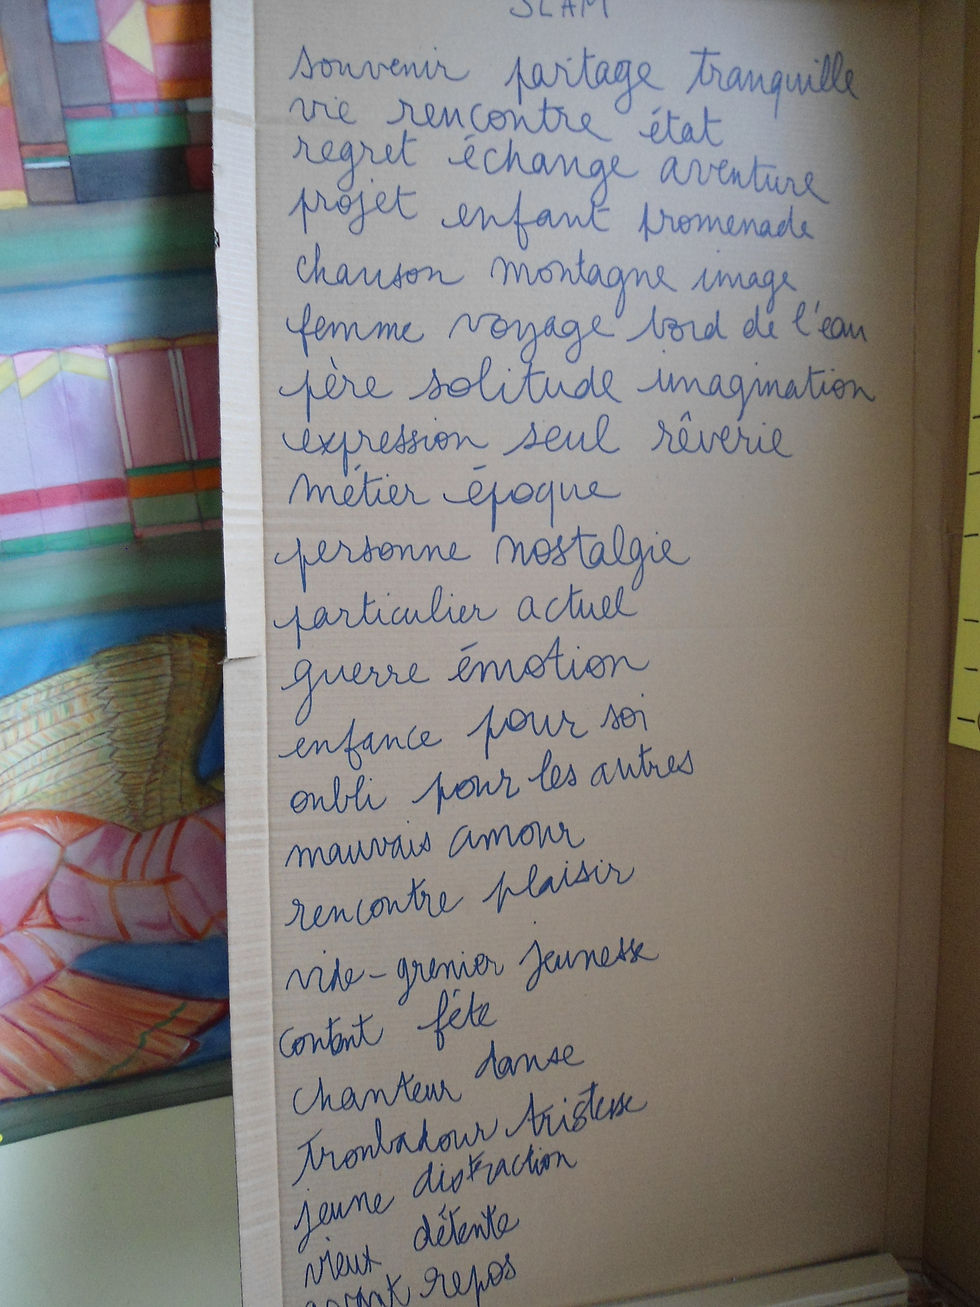 SLAM
souvenir partage tranquille
vie rencontre état
regret échange aventure
projet enfant promenade
chanson montagne image
femme voyage bord de l'eau
père solitude imagination
expression seul rêverie
métier époque
personne nostalgie
particulier actuel
guerre émotion
enfance pour soi
oubli pour les autres
mauvais amour
rencontre plaisir
vide-grenier jeunesse
content fête
chanteur danse
troubadour tristesse
jeune distraction
vieux détente
avant repos